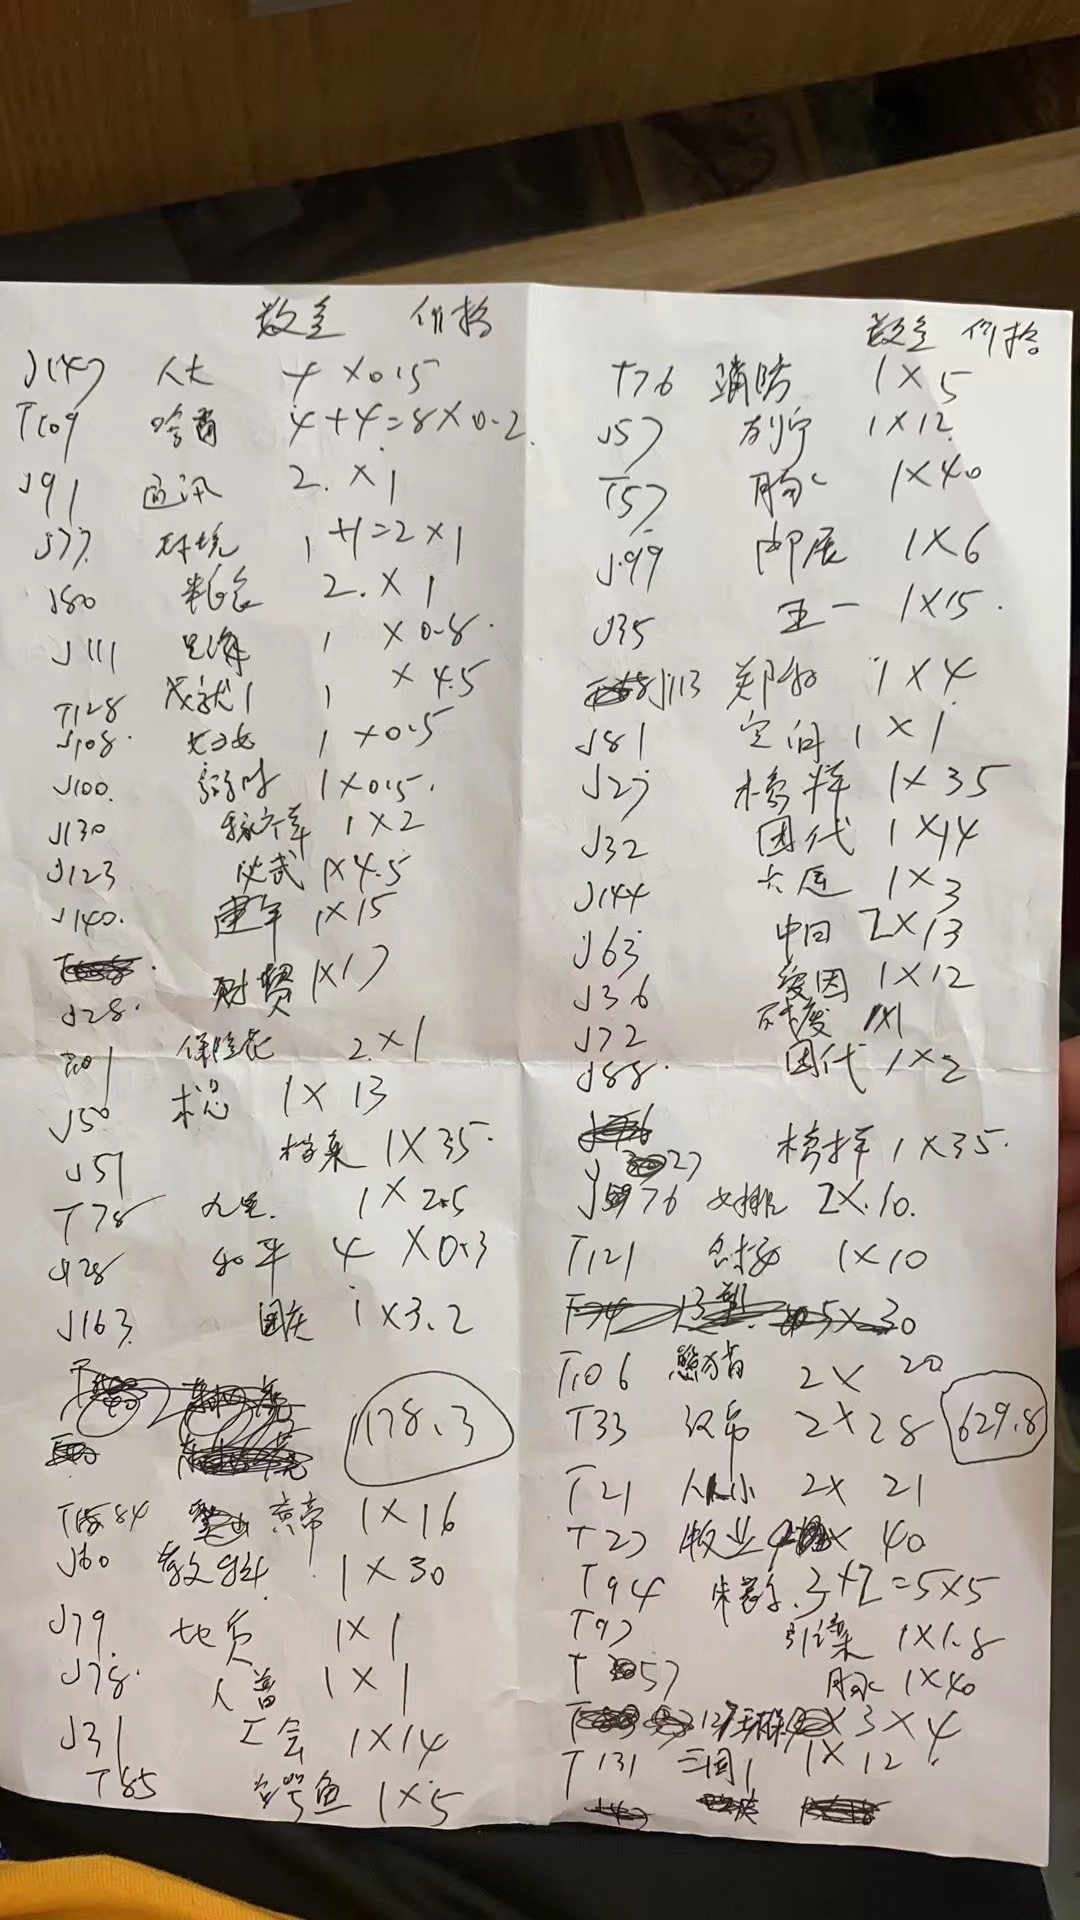 数量 价格
J147 人大 4 × 0.15
T109 哈商 4+4=8×0.2
J91 通讯 2. × 1
J77 环境 1+1=2×1
J80 2. × 1
J111 1 × 0.8
T128 成就1 1 × 4.5
J108 妇女 1 × 0.5
J100 1 × 0.5
J130 1 × 2
J123 必武 1×4.5
J140 建军 1×15
J28 1×17
保险 2×1
J50 1 × 13
J51 档案 1×35
T78 九星 1 × 2.5
J128 和平 4 × 0.3
J163 国庆 1×3.2
178.3
84 1×16
J60 1×30
J79 地质 1×1
J78 人普 1×1
J31 工会 1×14
T85 鳄鱼 1×5
数量 价格
T76 消防 1×5
J57 列宁 1×12
T57 1×40
J99 邮展 1×6
J35 五一 1×15
J113 郑和 1×4
J81 空间 1×1
J27 榜样 1×35
J32 团代 1×14
J144 大运 1×3
J63 中日 2×13
J36 爱因 1×12
J72 1×1
J88 团代 1×2
J27 榜样 1×35
J76 女排 2×10
T121 1×10
T106 熊猫 2× 20
T33 汉帛 2×28
629.8
T21 2× 21
T27 牧业 × 40
T94 朱鹮 3+2=5×5
T97 引滦 1×1.8
T57 1×40
127 3×4
T131 三国1 1×12